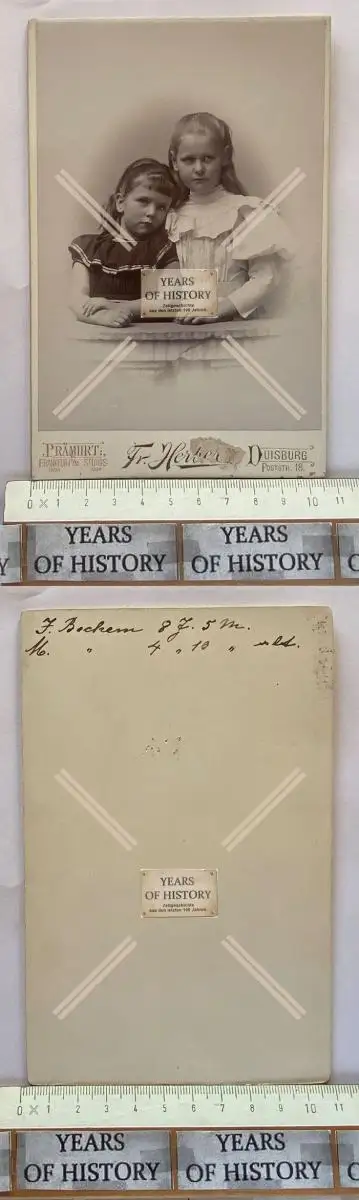 YEARS
OF HISTORY
Zeitgeschichte
aus den letzten 100 Jahren.
PRÄMIIRT:
FRANKFURT A/M
Fr. Herber
DUISBURG
POSTSTR. 18.
0 1 2 3 4 5 6 7 8 9 10 11
YEARS
OF HISTORY
YEARS
OF HISTORY
F. Bockem 8 J. 5 M.
M. " 4 " 10 " alt.
YEARS
OF HISTORY
Zeitgeschichte
aus den letzten 100 Jahren.
0 1 2 3 4 5 6 7 8 9 10 11
YEARS
OF HISTORY
YEARS
OF HISTORY